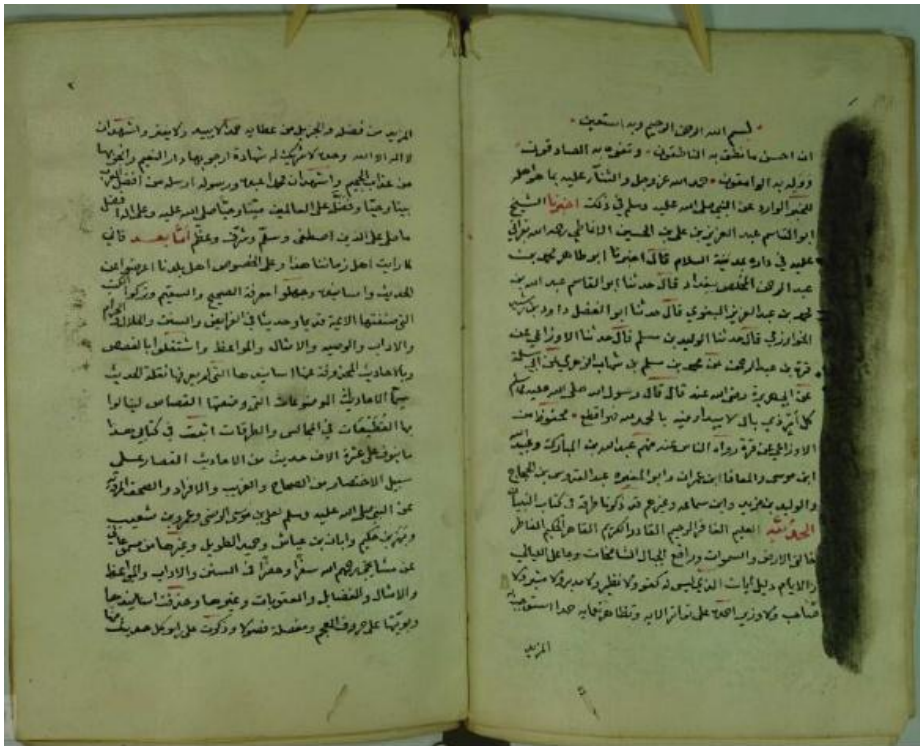 بسم الله الرحمن الرحيم وبه نستعين
ان احسن ما نطق به الناطقون وتفوه به الصادقون
ووله به الوامقون حمد الله عز وجل والثناء عليه بما هو اهله
للخبر الوارد عن النبي صلى الله عليه وسلم في ذلك اخبرنا الشيخ
ابو القاسم عبد العزيز بن علي بن الحسين الانماطي رحمه الله
عليه في داره بمدينة السلام قال اخبرنا ابو طاهر محمد بن
عبد الرحمن المخلص ببغداد قال حدثنا ابو القاسم عبد الله بن
محمد بن عبد العزيز البغوي قال حدثنا ابو الفضل داود بن رشيد
الخوارزمي قال حدثنا الوليد بن مسلم قال حدثنا الاوزاعي عن
قرة بن عبد الرحمن عن محمد بن مسلم بن شهاب الزهري عن ابي سلمة
عن ابي هريرة رضي الله عنه قال قال رسول الله صلى الله عليه وسلم
كل امر ذي بال لا يبدا فيه بالحمد لله اقطع محفوظ من
الاوزاعي عن قرة رواه الناس عنه منهم عبد الله بن المبارك وعبيد الله
ابن موسى والمعافا ابن عمران وابو المغيرة عبد القدوس بن الحجاج
والوليد بن مزيد وابن سماعه وغيرهم قد ذكرنا طرقه في كتاب
الحمد لله العليم الغافر الرحيم القادر الكريم القاهر الحكيم الفاطر
خالق الارض والسموات ورافع الجبال الشامخات وجاعل الليالي
والايام دليل ايات الذي ليس له كفو ولا نظير ولا مدبر ولا مشير ولا
صاحب ولا وزير احمده على تواتر الايه وتظاهر نعمايه حمدا استوجب به
المزيد
٢
المزيد من فضله والجزيل من عطايه حمدا لا يبيد ولا يفتر واشهد ان
لا اله الا الله وحده لا شريك له شهادة ارجو بها دار النعيم وانجو بها
من عذاب الجحيم واشهد ان محمدا عبده ورسوله ارسله من افضل
بيتا وحيا وفضله على العالمين ميتا وحيا صلى الله عليه وعلى اله افضل
ما صلى على الذين اصطفى وسلم وشرف وعظم اما بعد فاني
لما رايت اهل زماننا هذا وعلى الخصوص اهل بلدنا اعرضوا عن
الحديث واسانيده وجهلوا معرفة الصحيح والسقيم وتركوا الكتب
التي صنفتها الائمة قديما وحديثا في الفرايض والسنن والحلال والحرام
والاداب والوصيه والامثال والمواعظ واشتغلوا بالقصص
وبالاحاديث المحذوفة عنها اسانيدها التي لم يعرفها نقلة الحديث
سيما الاحاديث الموضوعات التي وضعتها القصاص لينالوا
بها القطيعات في المجالس والطرقات اثبت في كتابي هذا
ما ينوف على عشرة الاف حديث من الاحاديث القصار على
سبيل الاختصار من الصحاح والغريب والافراد والصحف المروية
عن النبي صلى الله عليه وسلم لعلي بن موسى الرضي وعمرو بن شعيب
وبهز بن حكيم وابان بن عياش وحميد الطويل وغيرها من مسموعاتي
عن مشايخي رحمهم الله سفرا وحضرا في السنن والاداب والمواعظ
والامثال والفضايل والعقوبات وغيرها وحذفت اسانيدها
وبوبتها على حروف المعجم ومفصلة فصولا وذكرت على ابو كل حديث منها